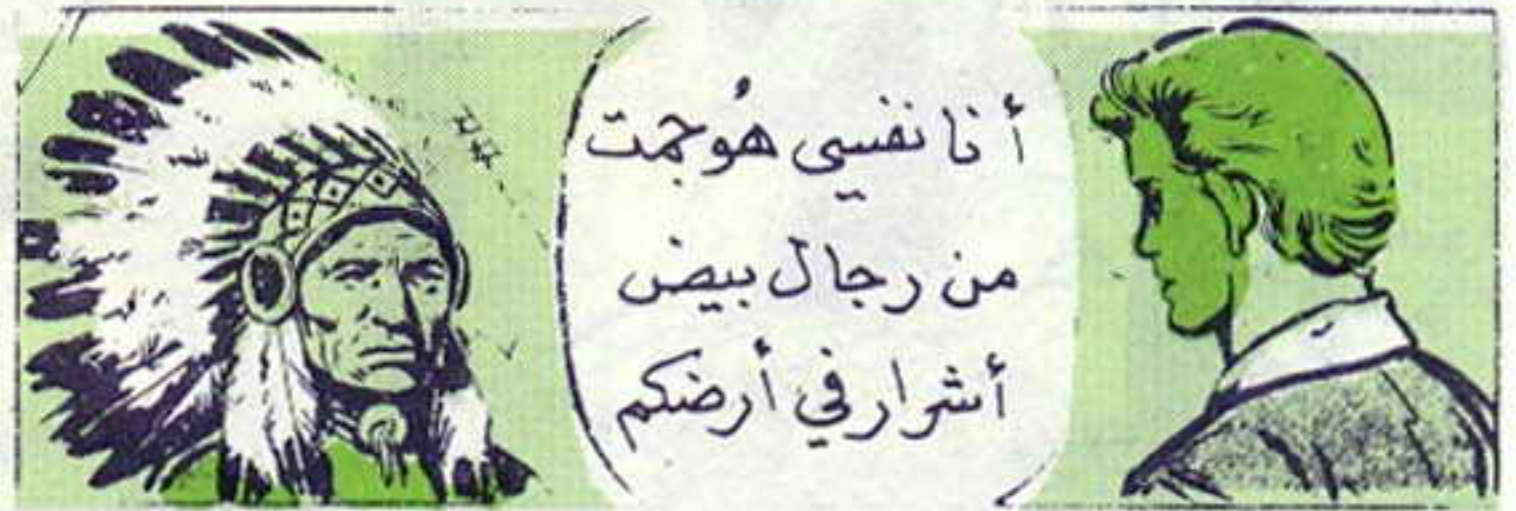 أنا نفسي هُوجمت
من رجال بيض
أشرار في أرضكم